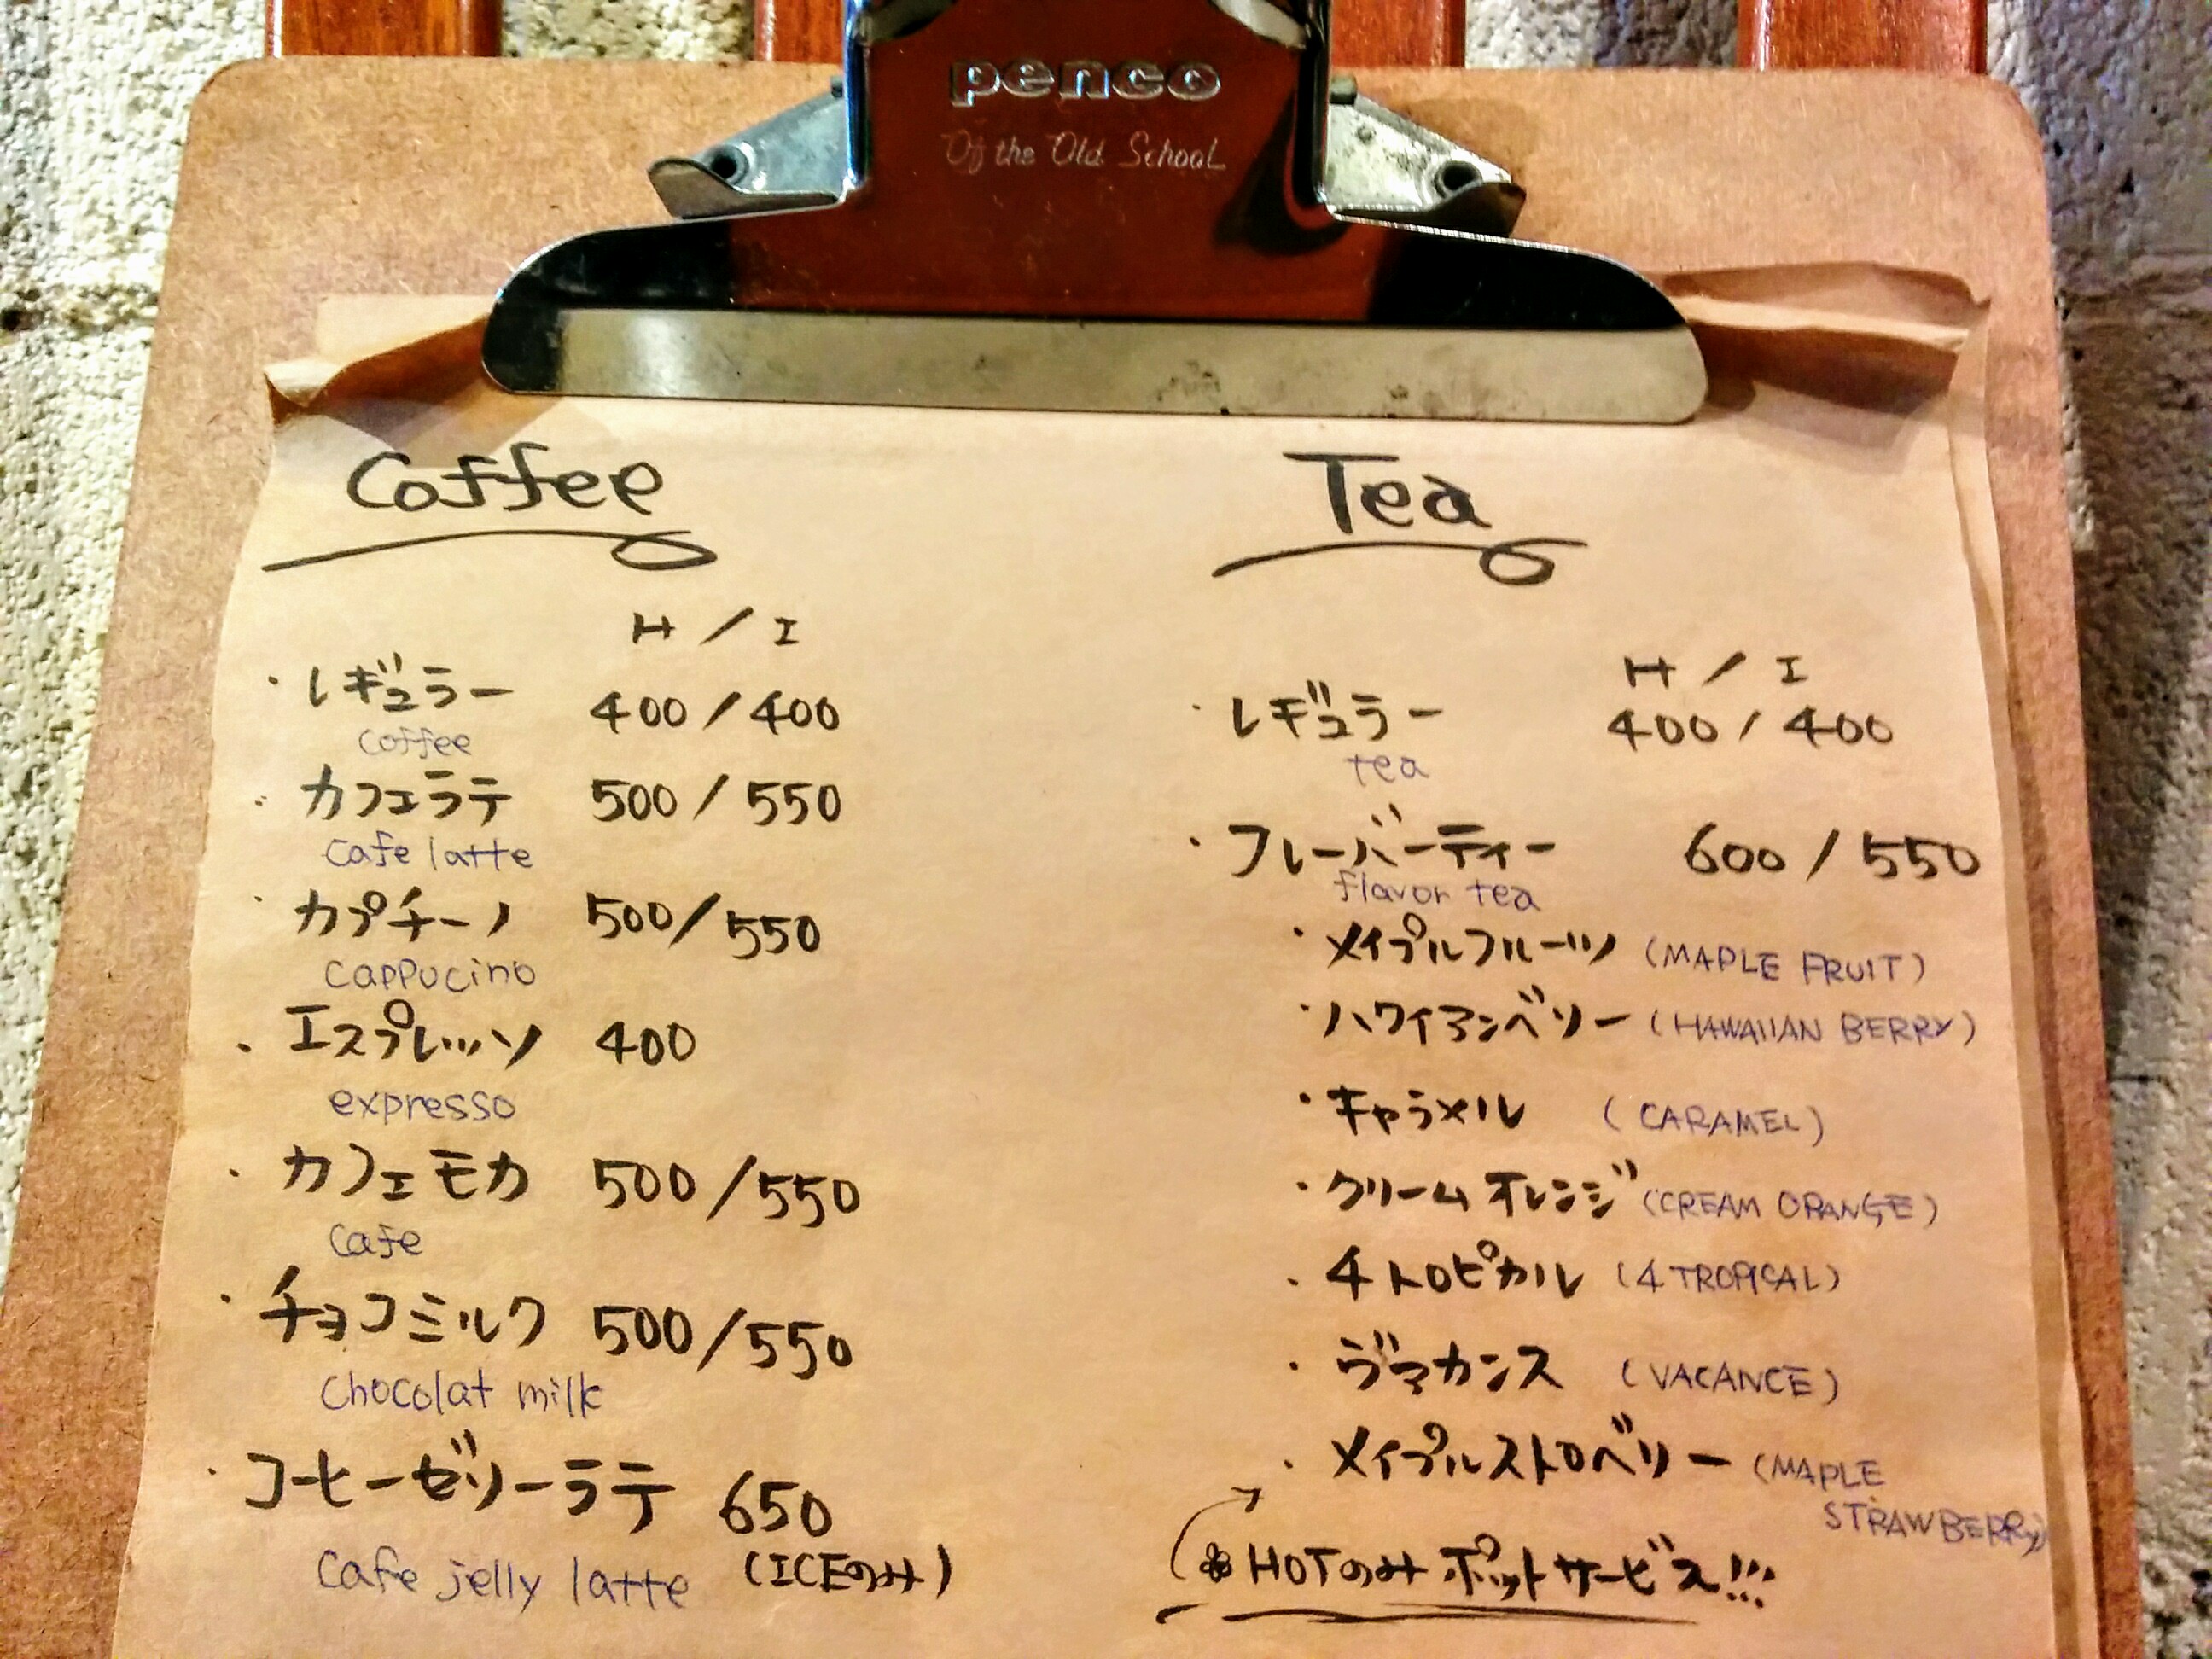 penco
Of the Old School
Coffee
H / I
・レギュラー 400 / 400
coffee
・カフェラテ 500 / 550
cafe latte
・カプチーノ 500 / 550
cappucino
・エスプレッソ 400
expresso
・カフェモカ 500 / 550
cafe
・チョコミルク 500 / 550
chocolat milk
・コーヒーゼリーラテ 650
cafe jelly latte (ICEのみ)
Tea
H / I
・レギュラー 400 / 400
tea
・フレーバーティー 600 / 550
flavor tea
・メイプルフルーツ (MAPLE FRUIT)
・ハワイアンベリー (HAWAIIAN BERRY)
・キャラメル (CARAMEL)
・クリームオレンジ (CREAM ORANGE)
・4トロピカル (4 TROPICAL)
・ヴァカンス (VACANCE)
・メイプルストロベリー (MAPLE
STRAWBERRY)
※HOTのみポットサービス!!!